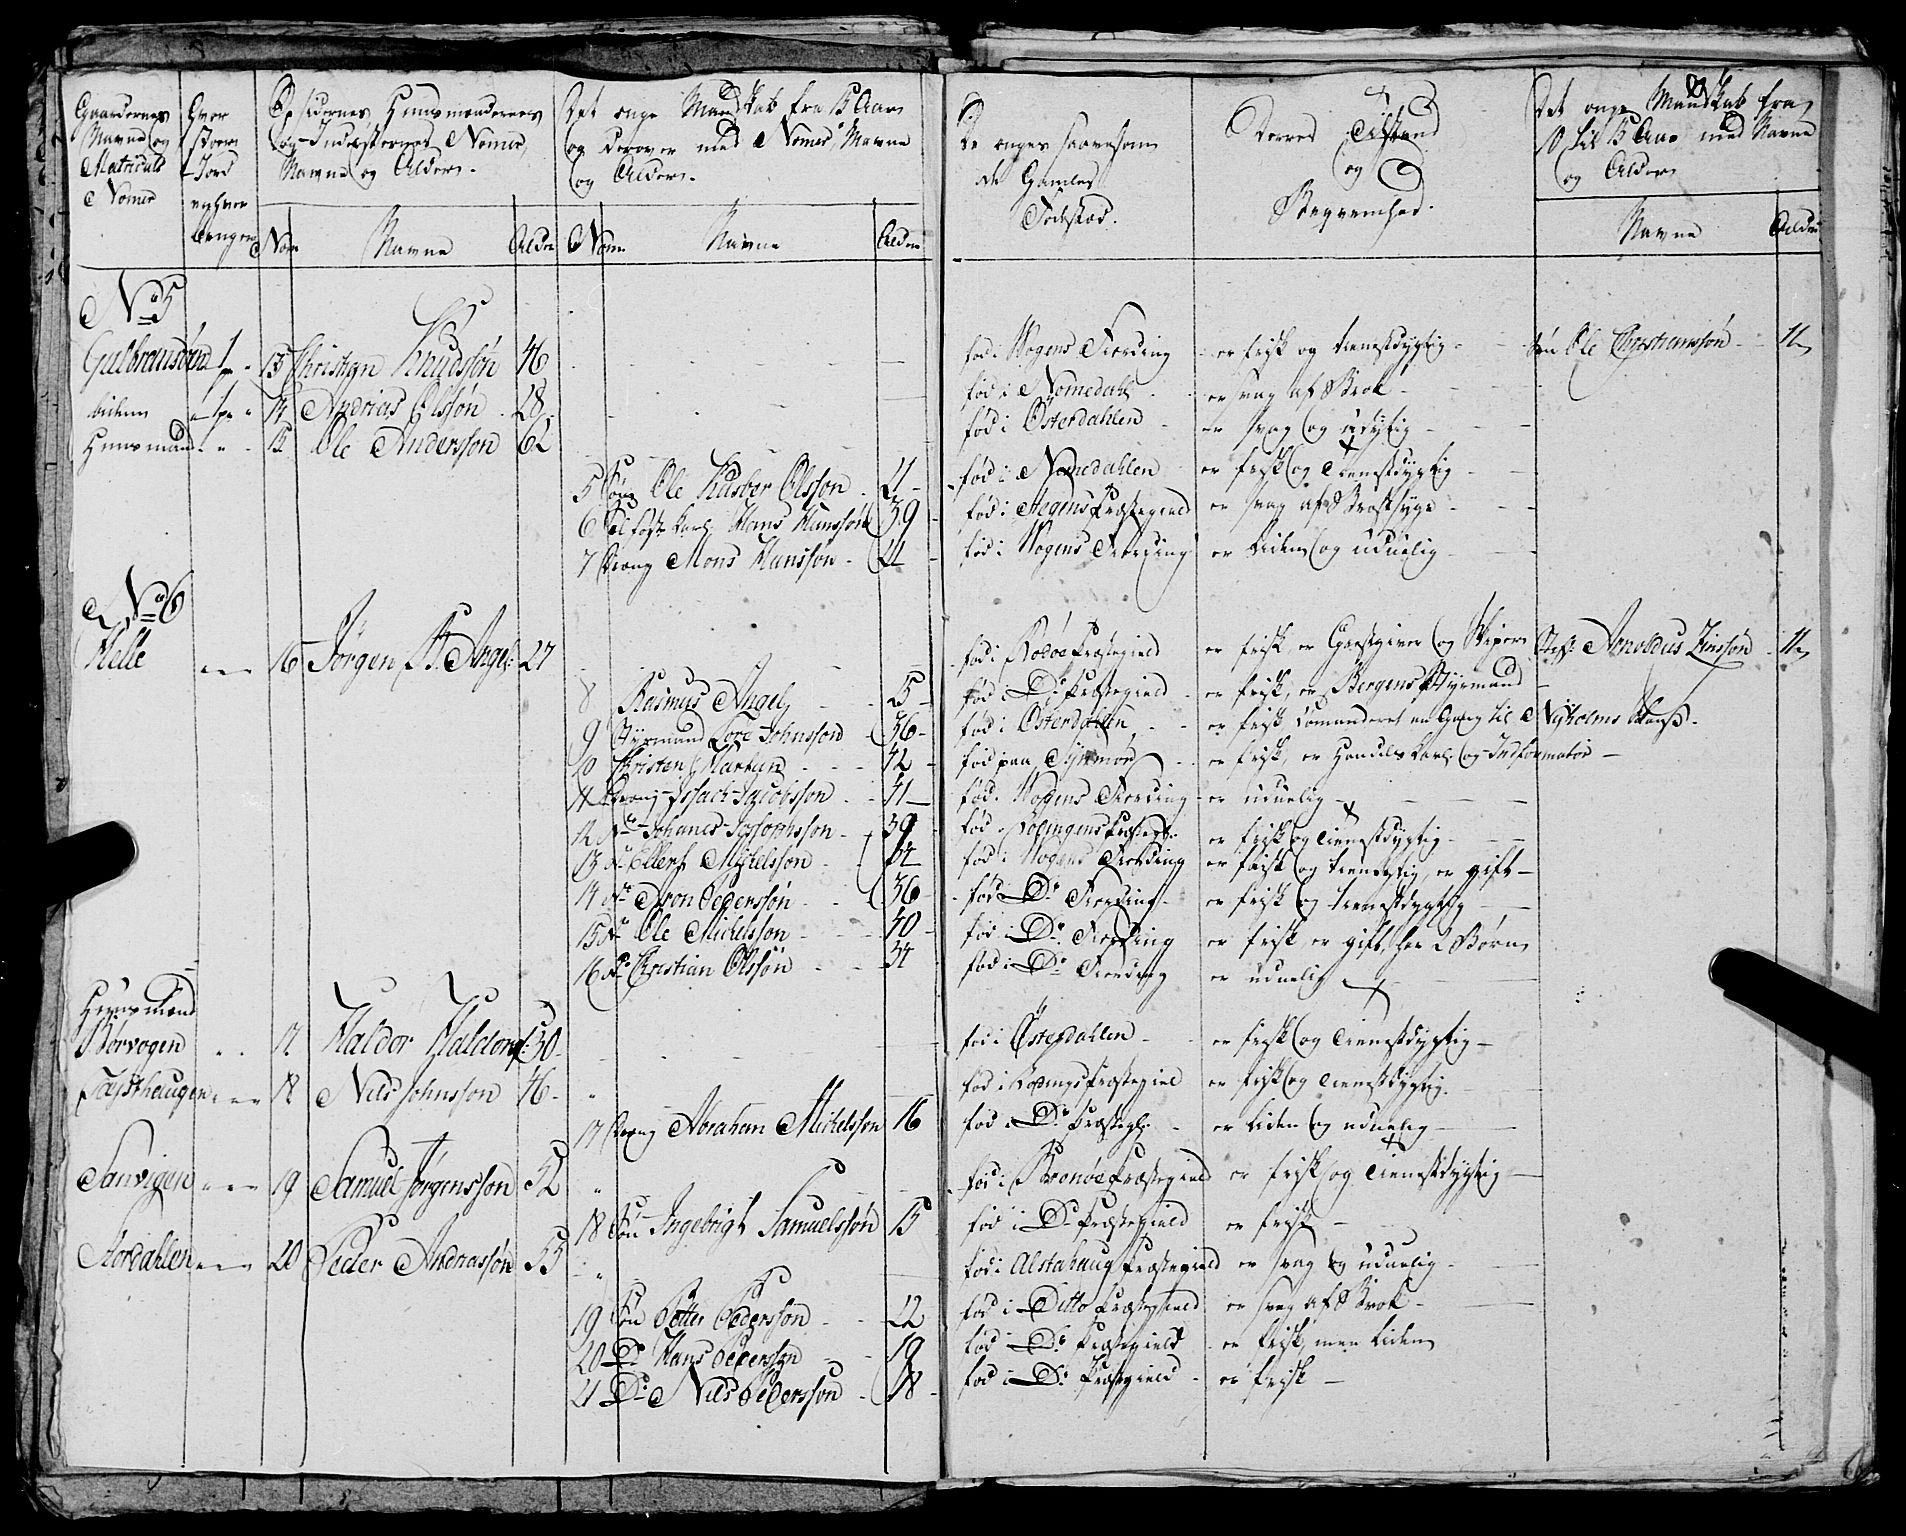 Gaardernes Navne og Matriculs Nomer
Hvor stoer Jord enhver bruger
Opsidernes Huusmændernes og Indersternes Nomer, Navne og Alder.
Det unge Mandskab fra 15 Aar og derover med Nomer Navne og Alder.
De unges saavelsom de Gamles Fødestæd.
Deres Tilstand og Beqvemhed.
Det unge Mandskab fra til 15 Aar med Navne og Alder
Nom Navne Alder Nom Navne Alder Navne Alder
No 5
Gulbransøen 1 13 Christian Knudsøn 46 fød i Wogens Fierding er frisk og tienestdygtig Søn Ole Christianssøn 11
14 Andrias Olssøn 28 fød i Nomedahl er svag af Brok
Huusmand 15 Ole Anderssøn 62 fød i Østerdahlen er svag og udygtig
5 Søn Ole Kasber Olsson 21 fød i Nomedahlen er frisk og tienestdygtig
6 Hans Hanssøn 39 fød i Præstegield er svag af Brøstsyge
7 Dreng Mons Hansson 21 fød i Wogens Fierding er liden og uduelig
No 6
Helle 16 Jørgen P. Angel 27 fød i Bodøe Præstegield er frisk er Giestgiver og Skiper Arnoldus 11
8 Rasmus Angel 25 fød i Do Præstegield er frisk, er Bergens Styrmand
9 Styrmand Tore Johnssøn 36 fød i Østerdahlen er frisk Comanderet en Gang til Nyholms Skanse
10 Christen Martin 42 fød paa Synmør er frisk, er Handels Karl og Informator
11 Dreng Issach Jacobsson 41 fød i Wogens Fierding er uduelig
12 do Johanes 39 fød i Præstegl. er frisk og tienestdygtig
13 do Ellert Mickelsson 34 fød i Wogens Fierding er frisk og tienestdygtig, er gift
14 do Aron Pederssøn 36 fød i Do Fierding er frisk og tienestdygtig
15 do Ole Mickelssøn 40 fød i Do Fierding er frisk er gift, har 2 Børn
16 do Christian Olssøn 34 fød i Do Fierding er uduelig
Huusmænd
Børvogen 17 Haldor Haldors: 30 fød i Østerdahlen er frisk og tienestdygtig
18 Nils Johnsson 46 fød i Præstegield er frisk og tienestdygtig
17 Dreng Abraham Mickelsson 16 fød i Do Præstegl. er liden og uduelig
Sanvigen 19 Samuel Jørgensson 52 fød i Brønøe Præstegield er frisk og tienestdygtig
18 Søn Ingebrigt Samuelssøn 15 fød i Do Præstegield er frisk
Nordahlen 20 Peder Andrassøn 55 fød i Alstahaug Præstegield er svag og uduelig
19 Søn Petter Pederssøn 22 fød i Ditto Præstegield er svag af Brok
20 Do Hans Pederssøn 19 fød i Do Præstegield er frisk, men liden
21 Do Nils Pedersson 18 fød i Do Præstegield er frisk